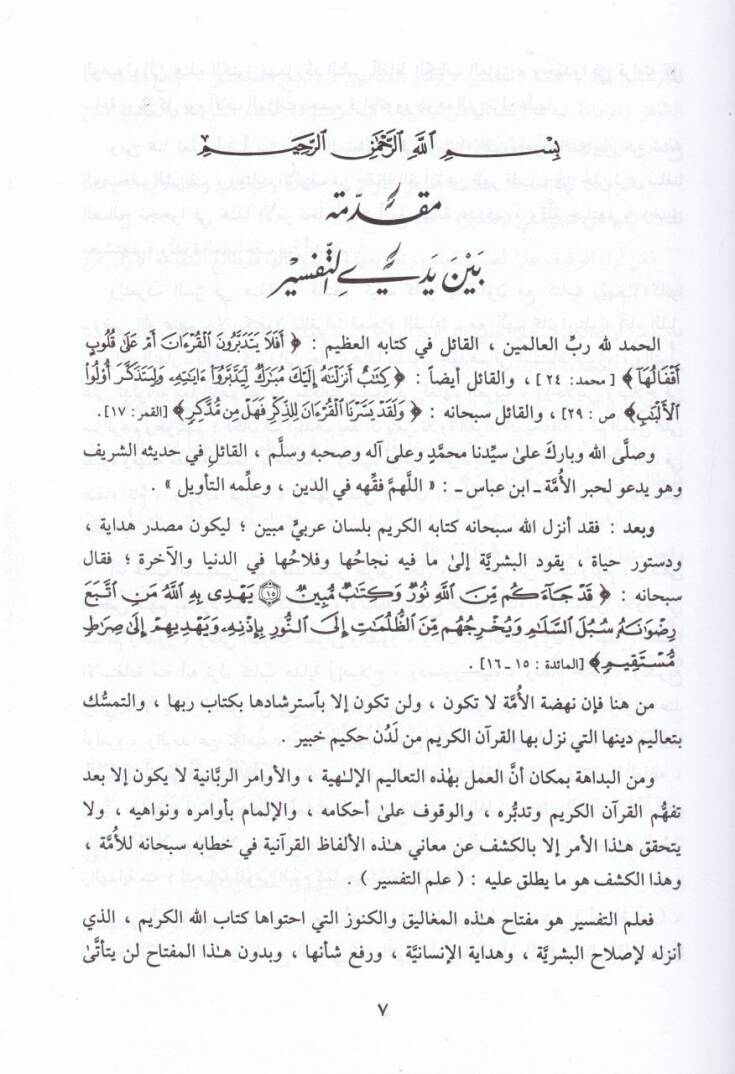 بِسْمِ اللَّهِ الرَّحْمَٰنِ الرَّحِيمِ
مقدمة
بَيْنَ يَدَيِ التَّفسيْر
الحمد لله ربِّ العالمين ، القائل في كتابه العظيم : ﴿ أَفَلَا يَتَدَبَّرُونَ ٱلْقُرْءَانَ أَمْ عَلَىٰ قُلُوبٍ
أَقْفَالُهَآ ﴾ [محمد: ٢٤] ، والقائل أيضاً : ﴿ كِتَٰبٌ أَنزَلْنَٰهُ إِلَيْكَ مُبَٰرَكٌ لِّيَدَّبَّرُوٓا۟ ءَايَٰتِهِۦ وَلِيَتَذَكَّرَ أُو۟لُوا۟
ٱلْأَلْبَٰبِ ﴾ ص : ٢٩] ، والقائل سبحانه : ﴿ وَلَقَدْ يَسَّرْنَا ٱلْقُرْءَانَ لِلذِّكْرِ فَهَلْ مِن مُّدَّكِرٍ ﴾ [القمر : ١٧] .
وصلَّى الله وباركَ علىٰ سيِّدنا محمَّدٍ وعلى آله وصحبه وسلَّم ، القائل في حديثه الشريف
وهو يدعو لحبر الأُمَّة ـ ابن عباس ـ : « اللهمَّ فقِّهه في الدين ، وعلِّمه التأويل » .
وبعد : فقد أنزل الله سبحانه كتابه الكريم بلسان عربيٍّ مبين ؛ ليكون مصدر هداية ،
ودستور حياة ، يقود البشريَّة إلىٰ ما فيه نجاحُها وفلاحُها في الدنيا والآخرة ؛ فقال
سبحانه : ﴿ قَدْ جَآءَكُم مِّنَ ٱللَّهِ نُورٌ وَكِتَٰبٌ مُّبِينٌ ۝١٥ يَهْدِى بِهِ ٱللَّهُ مَنِ ٱتَّبَعَ
رِضْوَٰنَهُۥ سُبُلَ ٱلسَّلَٰمِ وَيُخْرِجُهُم مِّنَ ٱلظُّلُمَٰتِ إِلَى ٱلنُّورِ بِإِذْنِهِۦ وَيَهْدِيهِمْ إِلَىٰ صِرَٰطٍ
مُّسْتَقِيمٍ ﴾ [المائدة : ١٥ـ١٦] .
من هنا فإن نهضة الأُمَّة لا تكون ، ولن تكون إلا بٱسترشادها بكتاب ربها ، والتمسُّك
بتعاليم دينها التي نزل بها القرآن الكريم من لَدُن حكيم خبير .
ومن البداهة بمكان أنَّ العمل بهٰذه التعاليم الإلٰهية ، والأوامر الربَّانية لا يكون إلا بعد
تفهُّم القرآن الكريم وتدبُّره ، والوقوف علىٰ أحكامه ، والإلمام بأوامره ونواهيه ، ولا
يتحقق هٰذا الأمر إلا بالكشف عن معاني هٰذه الألفاظ القرآنية في خطابه سبحانه للأُمَّة ،
وهٰذا الكشف هو ما يطلق عليه : ( علم التفسير ) .
فعلم التفسير هو مفتاح هٰذه المغاليق والكنوز التي احتواها كتاب الله الكريم ، الذي
أنزله لإصلاح البشريَّة ، وهداية الإنسانيَّة ، ورفع شأنها ، وبدون هٰذا المفتاح لن يتأتَّىٰ
٧